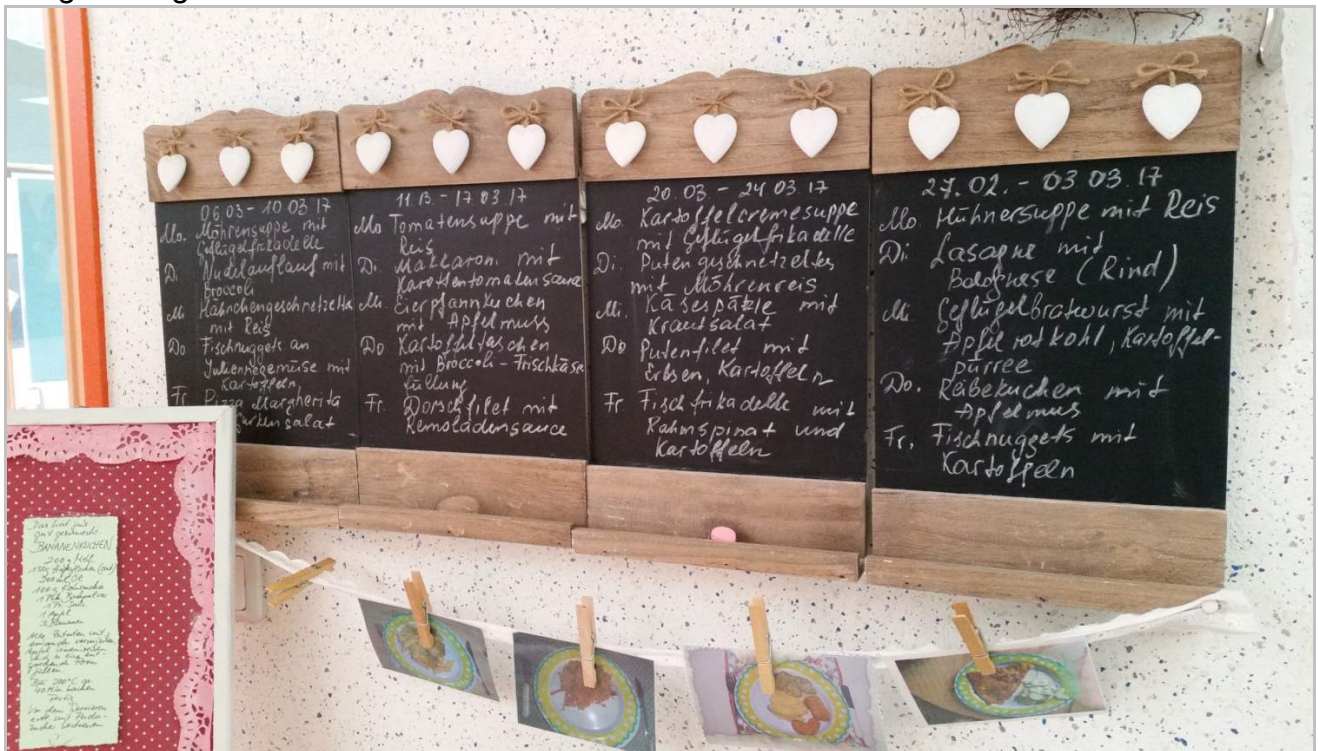 06.03 - 10 03 17
Mo. Möhrensuppe mit
Geflügelfrikadelle
Di Nudelauflauf mit
Broccoli
Mi Hähnchengeschnetzeltes
mit Reis
Do Fischnuggets an
Juliennegemüse mit
Kartoffeln
Fr Pizza Margherita
Gurkensalat
17 03 17
Mo Tomatensuppe mit
Reis
Di. Makkaroni mit
Karottentomatensauce
Mi. Eierpfannkuchen
mit Apfelmuss
Do Kartoffeltaschen
mit Broccoli - Frischkäse
füllung
Fr. Dorschfilet mit
Remoladensauce
20.03 - 24 03 17
Mo. Kartoffelcremesuppe
mit Geflügelfrikadelle
Di. Putengeschnetzeltes
mit Möhrenreis
Mi. Käsespätzle mit
Krautsalat
Do Putenfilet mit
Erbsen, Kartoffeln
Fr Fischfrikadelle mit
Rahmspinat und
Kartoffeln
27.02. - 03 03.17
Mo. Hühnersuppe mit Reis
Di. Lasagne mit
Bolognese (Rind)
Mi. Geflügelbratwurst mit
Apfelrotkohl, Kartoffel-
pürree
Do. Reibekuchen mit
Apfelmus
Fr. Fischnuggets mit
Kartoffeln
Das hat uns
gut geschmeckt
BANANENKUCHEN
200 g Mehl
1 Apfel
3 Bananen
Alle Zutaten mit
einander vermischen
Bei 200°C ca.
40 Min. backen
Fertig
Vor dem Servieren